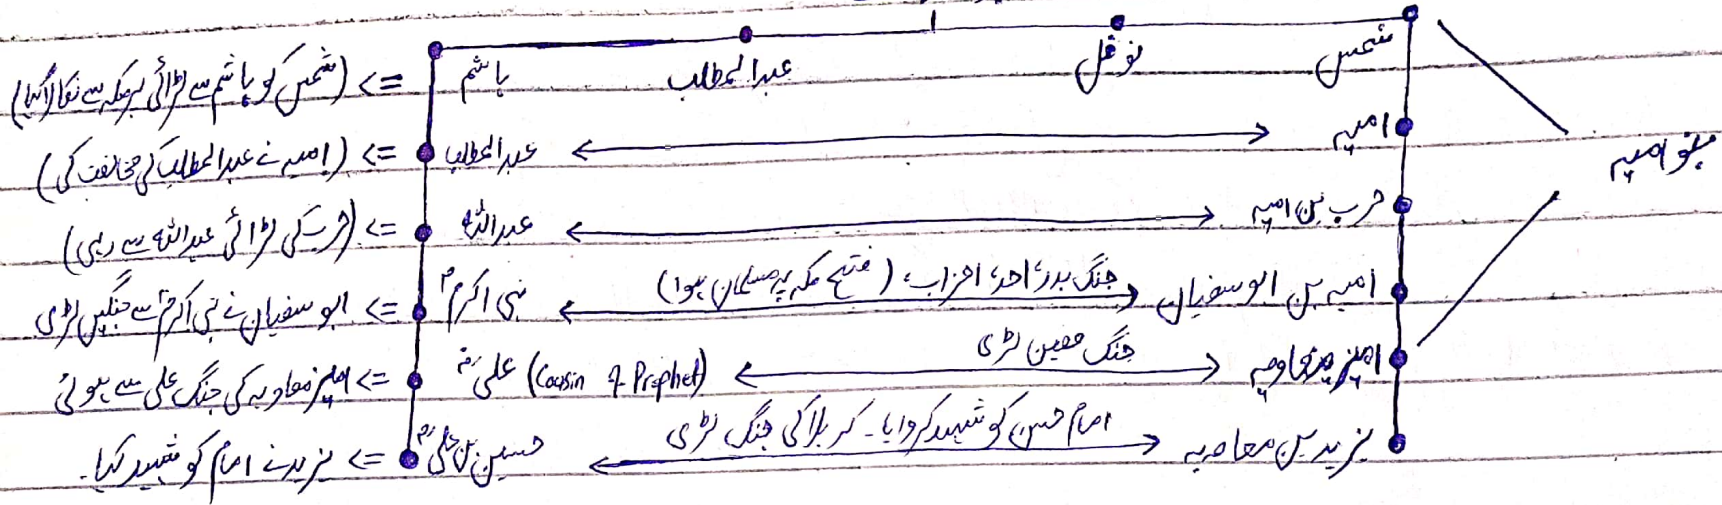 شمس نوفل عبدالمطلب ہاشم => (شمس کو ہاشم سے لڑائی پر مکہ سے نکالا گیا)
بنو امیہ
امیہ عبدالمطلب => (امیہ نے عبدالمطلب کی مخالفت کی)
حرب بن امیہ عبداللہ => (حرب کی لڑائی عبداللہ سے رہی)
امیہ بن ابو سفیان جنگ بدر، احد، احزاب، (فتح مکہ پر مسلمان ہوا) نبی اکرمؐ => ابو سفیان نے نبی اکرمؐ سے جنگیں لڑی
امیر معاویہ جنگ صفین لڑی علیؓ (Cousin of Prophet) => امیر معاویہ کی جنگ علی سے ہوئی
یزید بن معاویہ امام حسن کو شہید کروایا۔ کربلا کی جنگ لڑی حسین بن علیؓ => یزید نے امام کو شہید کیا۔